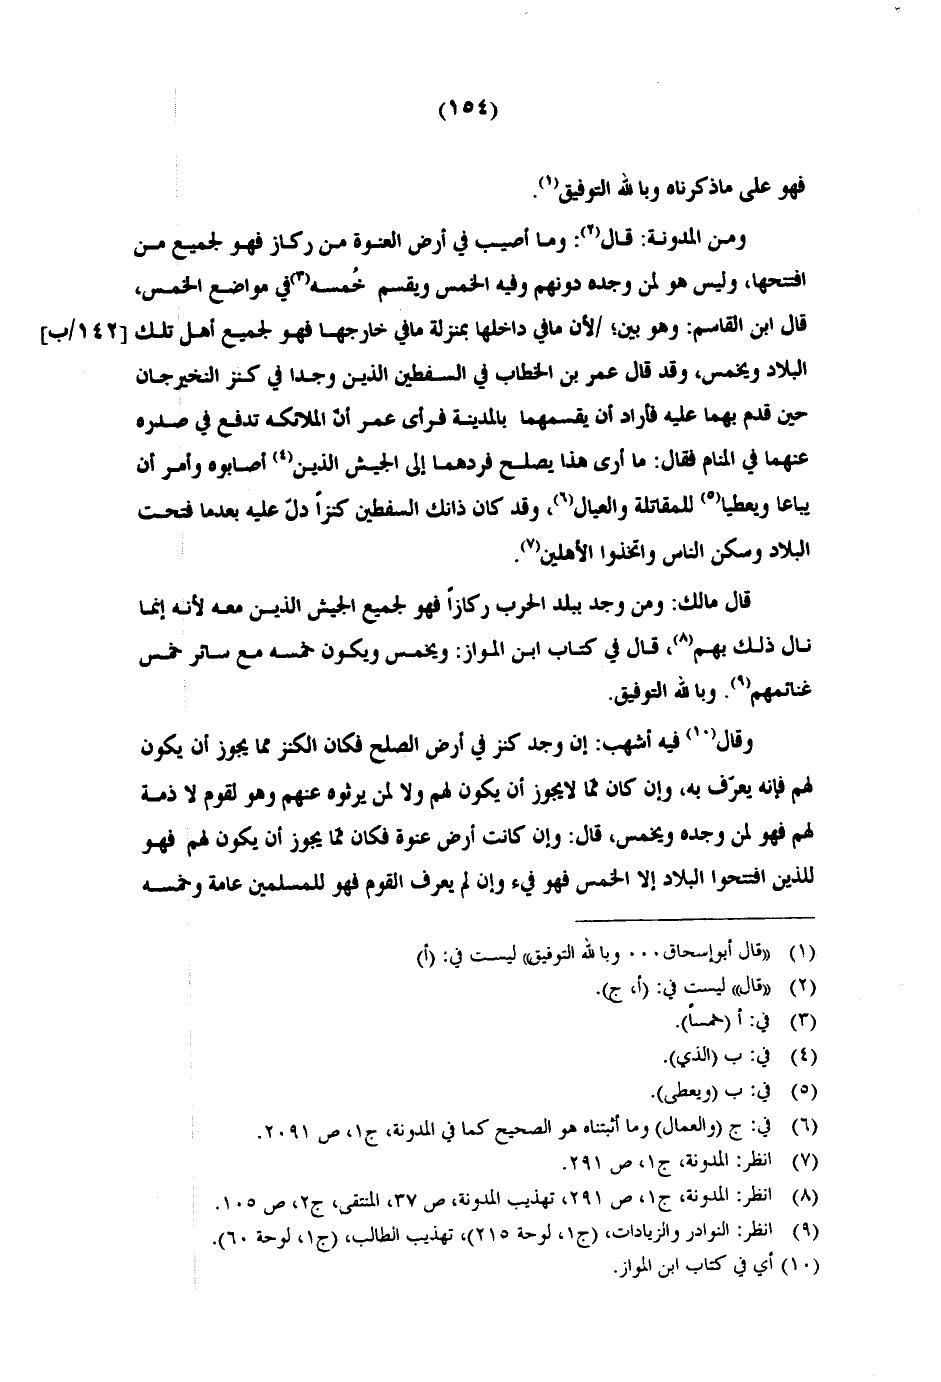 (١٥٤)
فهو على ماذكرناه وبالله التوفيق(١).
ومن المدونة: قال(٢): وما أصيب في أرض العنوة من ركاز فهو لجميع من
افتتحها، وليس هو لمن وجده دونهم وفيه الخمس ويقسم خُمسه(٣) في مواضع الخمس،
قال ابن القاسم: وهو بين؛ /لأن مافي داخلها بمنزلة مافي خارجها فهو لجميع أهل تلك [١٤٢/ب]
البلاد ويخمس، وقد قال عمر بن الخطاب في السفطين الذين وجدا في كنز النخيرجان
حين قدم بهما عليه فأراد أن يقسمهما بالمدينة فرأى عمر أنّ الملائكه تدفع في صدره
عنهما في المنام فقال: ما أرى هذا يصلح فردهما إلى الجيش الذين(٤) أصابوه وأمر أن
يباعا ويعطيا(٥) للمقاتلة والعيال(٦)، وقد كان ذانك السفطين كنزاً دلّ عليه بعدما فتحت
البلاد وسكن الناس واتخذوا الأهلين(٧).
قال مالك: ومن وجد ببلد الحرب ركازاً فهو لجميع الجيش الذين معه لأنه إنما
نال ذلك بهم(٨)، قال في كتاب ابن المواز: ويخمس ويكون خمسه مع سائر خمس
غنائمهم(٩). وبالله التوفيق.
وقال(١٠) فيه أشهب: إن وجد كنز في أرض الصلح فكان الكنز مما يجوز أن يكون
لهم فإنه يعرّف به، وإن كان مما لايجوز أن يكون لهم ولا لمن يرثوه عنهم وهو لقوم لا ذمة
لهم فهو لمن وجده ويخمس، قال: وإن كانت أرض عنوة فكان مما يجوز أن يكون لهم فهو
للذين افتتحوا البلاد إلا الخمس فهو فيء وإن لم يعرف القوم فهو للمسلمين عامة وخمسه
(١) «قال أبوإسحاق... وبالله التوفيق» ليست في: (أ)
(٢) «قال» ليست في: (أ، ج).
(٣) في: أ (خمساً).
(٤) في: ب (الذي).
(٥) في: ب (ويعطى).
(٦) في: ج (والعمال) وما أثبتناه هو الصحيح كما في المدونة، ج١، ص ٢٠٩١.
(٧) انظر: المدونة، ج١، ص ٢٩١.
(٨) انظر: المدونة، ج١، ص ٢٩١، تهذيب المدونة، ص ٣٧، المنتقى، ج٢، ص ١٠٥.
(٩) انظر: النوادر والزيادات، (ج١، لوحة ٢١٥)، تهذيب الطالب، (ج١، لوحة ٦٠).
(١٠) أي في كتاب ابن المواز.